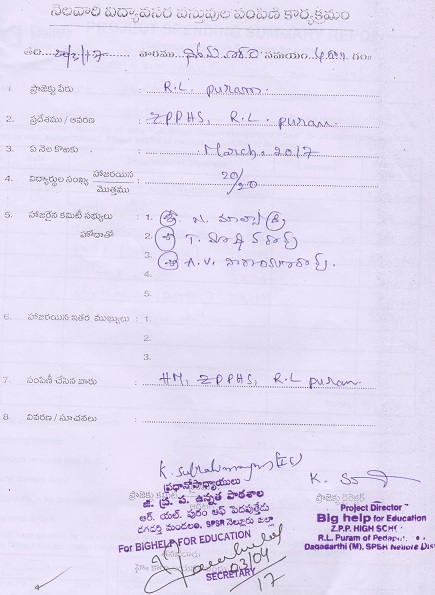 నెలవారీ విద్యావసర వస్తువుల పంపిణీ కార్యక్రమం
తేది 20/3/17 వారము సోమవారం సమయం గం॥
1. ప్రాజెక్టు పేరు R.L. puram.
2. ప్రదేశము / ఆవరణ ZPPHS, R.L. puram
3. ఏ నెల కొఱకు March, 2017
4. విద్యార్థుల సంఖ్య హాజరయిన 20/20
మొత్తము
5. హాజరైన కమిటీ సభ్యులు 1. శ్రీ N.
హోదాతో 2. శ్రీ T.
3. శ్రీ A.V. నారాయణరావు.
4.
5.
6. హాజరయిన ఇతర ముఖ్యులు : 1.
2.
3.
7. పంపిణీ చేసిన వారు HM, ZPPHS, R.L puram.
8. వివరణ / సూచనలు
K.
ప్రధానోపాధ్యాయులు
జి. ప్ర. ప. ఉన్నత పాఠశాల
ఆర్. యల్. పురం ఆఫ్ పెదపుత్తేడు
దగదర్తి మండలం, SPSR నెల్లూరు జిల్లా
For BIGHELP FOR EDUCATION
03/04
SECRETARY
17
K.
ప్రాజెక్టు డైరెక్టర్
Project Director
Big help for Education
Z.P.P. HIGH SCH
R.L. Puram of Pedapu
Dagadarthi (M), SPSR Nellore Dist